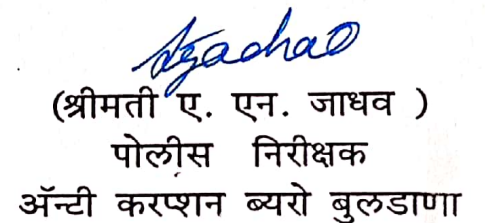 (श्रीमती ए. एन. जाधव )
पोलीस निरीक्षक
ॲन्टी करप्शन ब्यरो बुलडाणा